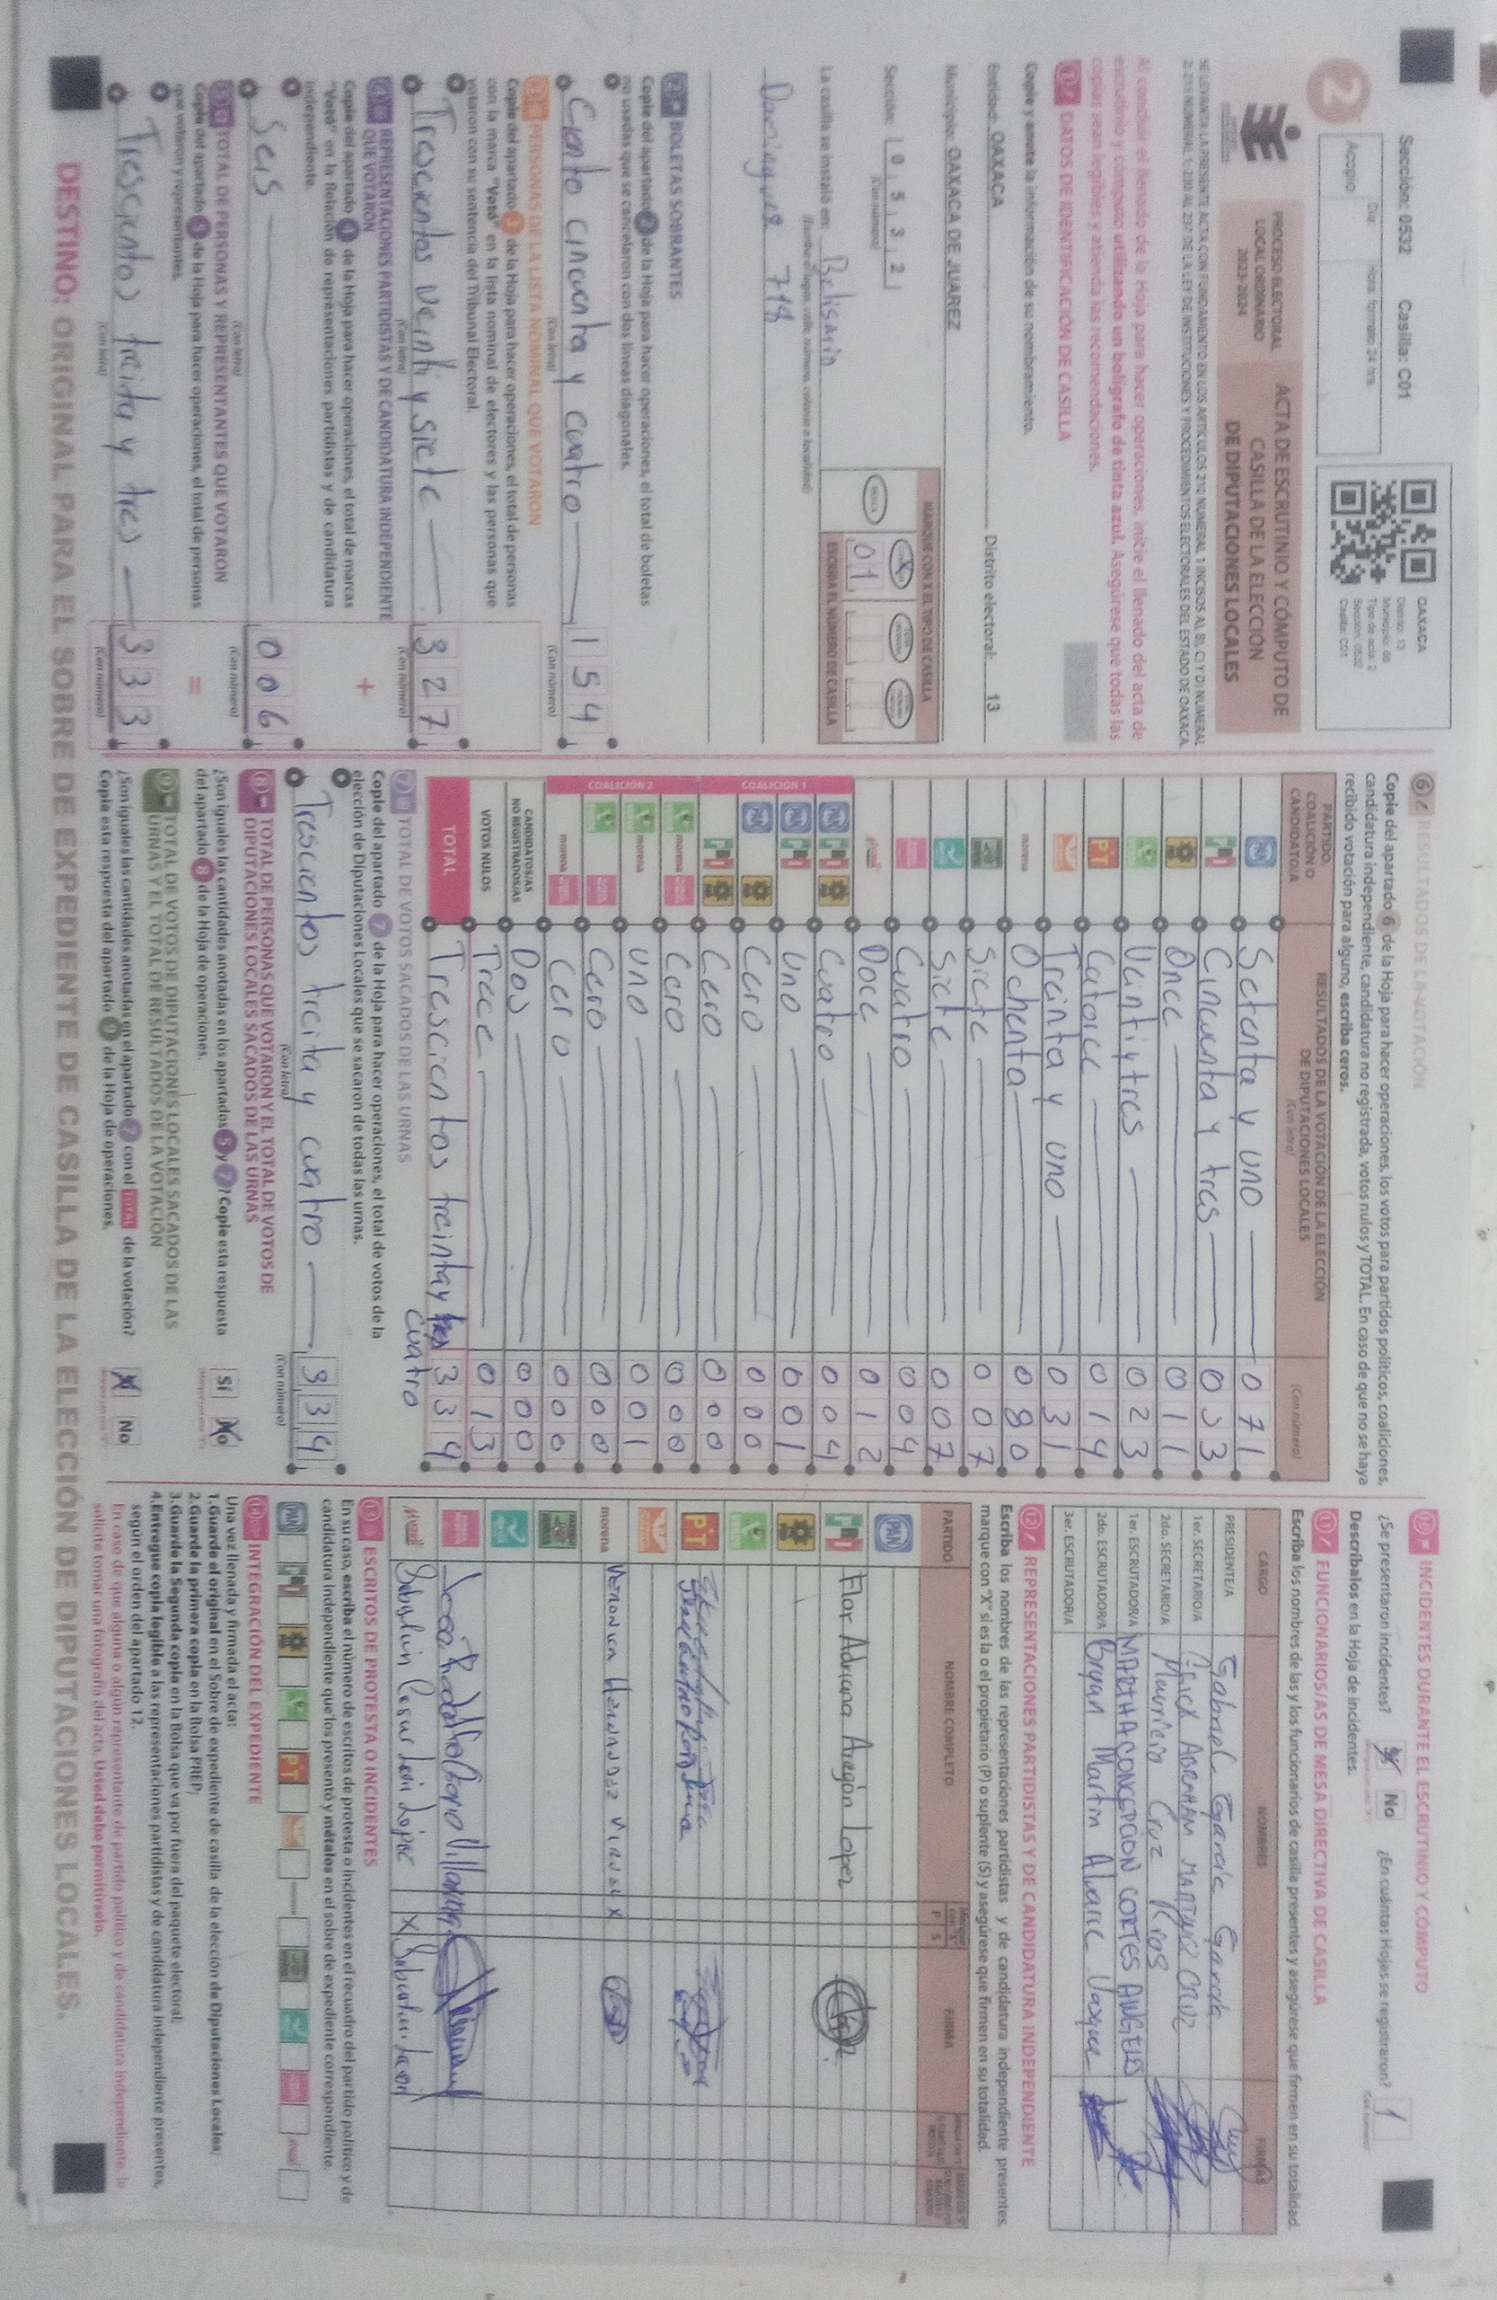 Sección: 0532 Casilla: C01
2
Día: Hora: formato 24 hrs.
Acopio
OAXACA
Distrito: 13
Municipio: 68
Tipo de acta: 2
Sección: 0532
Casilla: C01
PROCESO ELECTORAL
LOCAL ORDINARIO
2023-2024
ACTA DE ESCRUTINIO Y CÓMPUTO DE
CASILLA DE LA ELECCIÓN
DE DIPUTACIONES LOCALES
Al concluir el llenado de la Hoja para hacer operaciones, inicie el llenado del acta de
escrutinio y cómputo utilizando un bolígrafo de tinta azul. Asegúrese que todas las
copias sean legibles y atienda las recomendaciones.
1 DATOS DE IDENTIFICACIÓN DE CASILLA
Copie y anote la información de su nombramiento.
Entidad: OAXACA Distrito electoral: 13
Municipio: OAXACA DE JUAREZ
Sección: 0 5 3 2
(Con número)
MARQUE CON X EL TIPO DE CASILLA
X
01
ESCRIBA EL NÚMERO DE CASILLA
La casilla se instaló en: Belisario
Domínguez 718
2 BOLETAS SOBRANTES
Copie del apartado 2 de la Hoja para hacer operaciones, el total de boletas
no usadas que se cancelaron con dos líneas diagonales.
Ciento cincuenta y cuatro 154
(Con letra) (Con número)
3 PERSONAS DE LA LISTA NOMINAL QUE VOTARON
Copie del apartado 3 de la Hoja para hacer operaciones, el total de personas
con la marca "Votó" en la lista nominal de electores y las personas que
votaron con su sentencia del Tribunal Electoral.
Trescientos veinti y siete 327
(Con letra) (Con número)
4 REPRESENTACIONES PARTIDISTAS Y DE CANDIDATURA INDEPENDIENTE
QUE VOTARON
Copie del apartado 4 de la Hoja para hacer operaciones, el total de marcas
"Votó" en la Relación de representaciones partidistas y de candidatura
independiente.
+
Seis 006
(Con letra) (Con número)
5 TOTAL DE PERSONAS Y REPRESENTANTES QUE VOTARON
Copie del apartado 5 de la Hoja para hacer operaciones, el total de personas
que votaron y representantes.
=
Trescientos treinta y tres 333
(Con letra) (Con número)
6 RESULTADOS DE LA VOTACIÓN
Copie del apartado 6 de la Hoja para hacer operaciones, los votos para partidos políticos, coaliciones,
candidatura independiente, candidatura no registrada, votos nulos y TOTAL. En caso de que no se haya
recibido votación para alguno, escriba ceros.
PARTIDO, COALICIÓN O CANDIDATO/A
RESULTADOS DE LA VOTACIÓN DE LA ELECCIÓN DE DIPUTACIONES LOCALES
(Con letra) (Con número)
PAN Setenta y uno 071
PRI Cincuenta y tres 053
Once 011
Veintiytres 023
PT Catorce 014
Treinta y uno 031
morena Ochenta 080
Siete 007
Siete 007
Cuatro 004
Doce 012
COALICIÓN 1
PAN PRI Cuatro 004
PAN PRI Uno 001
PAN Cero 000
PRI Cero 000
COALICIÓN 2
morena Cero 000
morena Uno 001
Cero 000
morena Cero 000
CANDIDATOS/AS NO REGISTRADOS/AS Dos 000
VOTOS NULOS Trece 013
TOTAL Trescientos treinta y cuatro 334
7 TOTAL DE VOTOS SACADOS DE LAS URNAS
Copie del apartado 7 de la Hoja para hacer operaciones, el total de votos de la
elección de Diputaciones Locales que se sacaron de todas las urnas.
Trescientos treita y cuatro 334
(Con letra) (Con número)
8 TOTAL DE PERSONAS QUE VOTARON Y EL TOTAL DE VOTOS DE
DIPUTACIONES LOCALES SACADOS DE LAS URNAS
¿Son iguales las cantidades anotadas en los apartados 5 y 7? Copie esta respuesta
del apartado 8 de la Hoja de operaciones. Sí No
9 TOTAL DE VOTOS DE DIPUTACIONES LOCALES SACADOS DE LAS
URNAS Y EL TOTAL DE RESULTADOS DE LA VOTACIÓN
¿Son iguales las cantidades anotadas en el apartado 7 con el TOTAL de la votación?
Copie esta respuesta del apartado 9 de la Hoja de operaciones. No
10 INCIDENTES DURANTE EL ESCRUTINIO Y CÓMPUTO
¿Se presentaron incidentes? No ¿En cuántas Hojas se registraron? 1
Descríbalos en la Hoja de incidentes.
11 FUNCIONARIOS/AS DE MESA DIRECTIVA DE CASILLA
Escriba los nombres de las y los funcionarios de casilla presentes y asegúrese que firmen en su totalidad.
CARGO NOMBRES FIRMAS
PRESIDENTE/A Gabriel García García
1er. SECRETARIO/A Erick Abraham Martínez Cruz
2do. SECRETARIO/A Mauricio Cruz Rios
1er. ESCRUTADOR/A MARTHA CONCEPCION CORTES ANGELES
2do. ESCRUTADOR/A Bryan Martin Alvarez Vasquez
3er. ESCRUTADOR/A
12 REPRESENTACIONES PARTIDISTAS Y DE CANDIDATURA INDEPENDIENTE
Escriba los nombres de las representaciones partidistas y de candidatura independiente presentes,
marque con "X" si es la o el propietario (P) o suplente (S) y asegúrese que firmen en su totalidad.
PARTIDO NOMBRE COMPLETO P S FIRMA
PAN
PRI Flor Adriana Aragón Lopez
PT
morena Veronica Hernandez X
X
13 ESCRITOS DE PROTESTA O INCIDENTES
En su caso, escriba el número de escritos de protesta o incidentes en el recuadro del partido político y de
candidatura independiente que los presentó y métalos en el sobre de expediente correspondiente.
PAN PRI PT
14 INTEGRACIÓN DEL EXPEDIENTE
Una vez llenada y firmada el acta:
1.Guarde el original en el Sobre de expediente de casilla de la elección de Diputaciones Locales;
2.Guarde la primera copia en la Bolsa PREP;
3.Guarde la Segunda copia en la Bolsa que va por fuera del paquete electoral;
4.Entregue copia legible a las representaciones partidistas y de candidatura independiente presentes,
según el orden del apartado 12.
En caso de que alguna o algún representante de partido político y de candidatura independiente, le
solicite tomar una fotografía del acta, Usted debe permitírselo.
DESTINO: ORIGINAL PARA EL SOBRE DE EXPEDIENTE DE CASILLA DE LA ELECCIÓN DE DIPUTACIONES LOCALES.